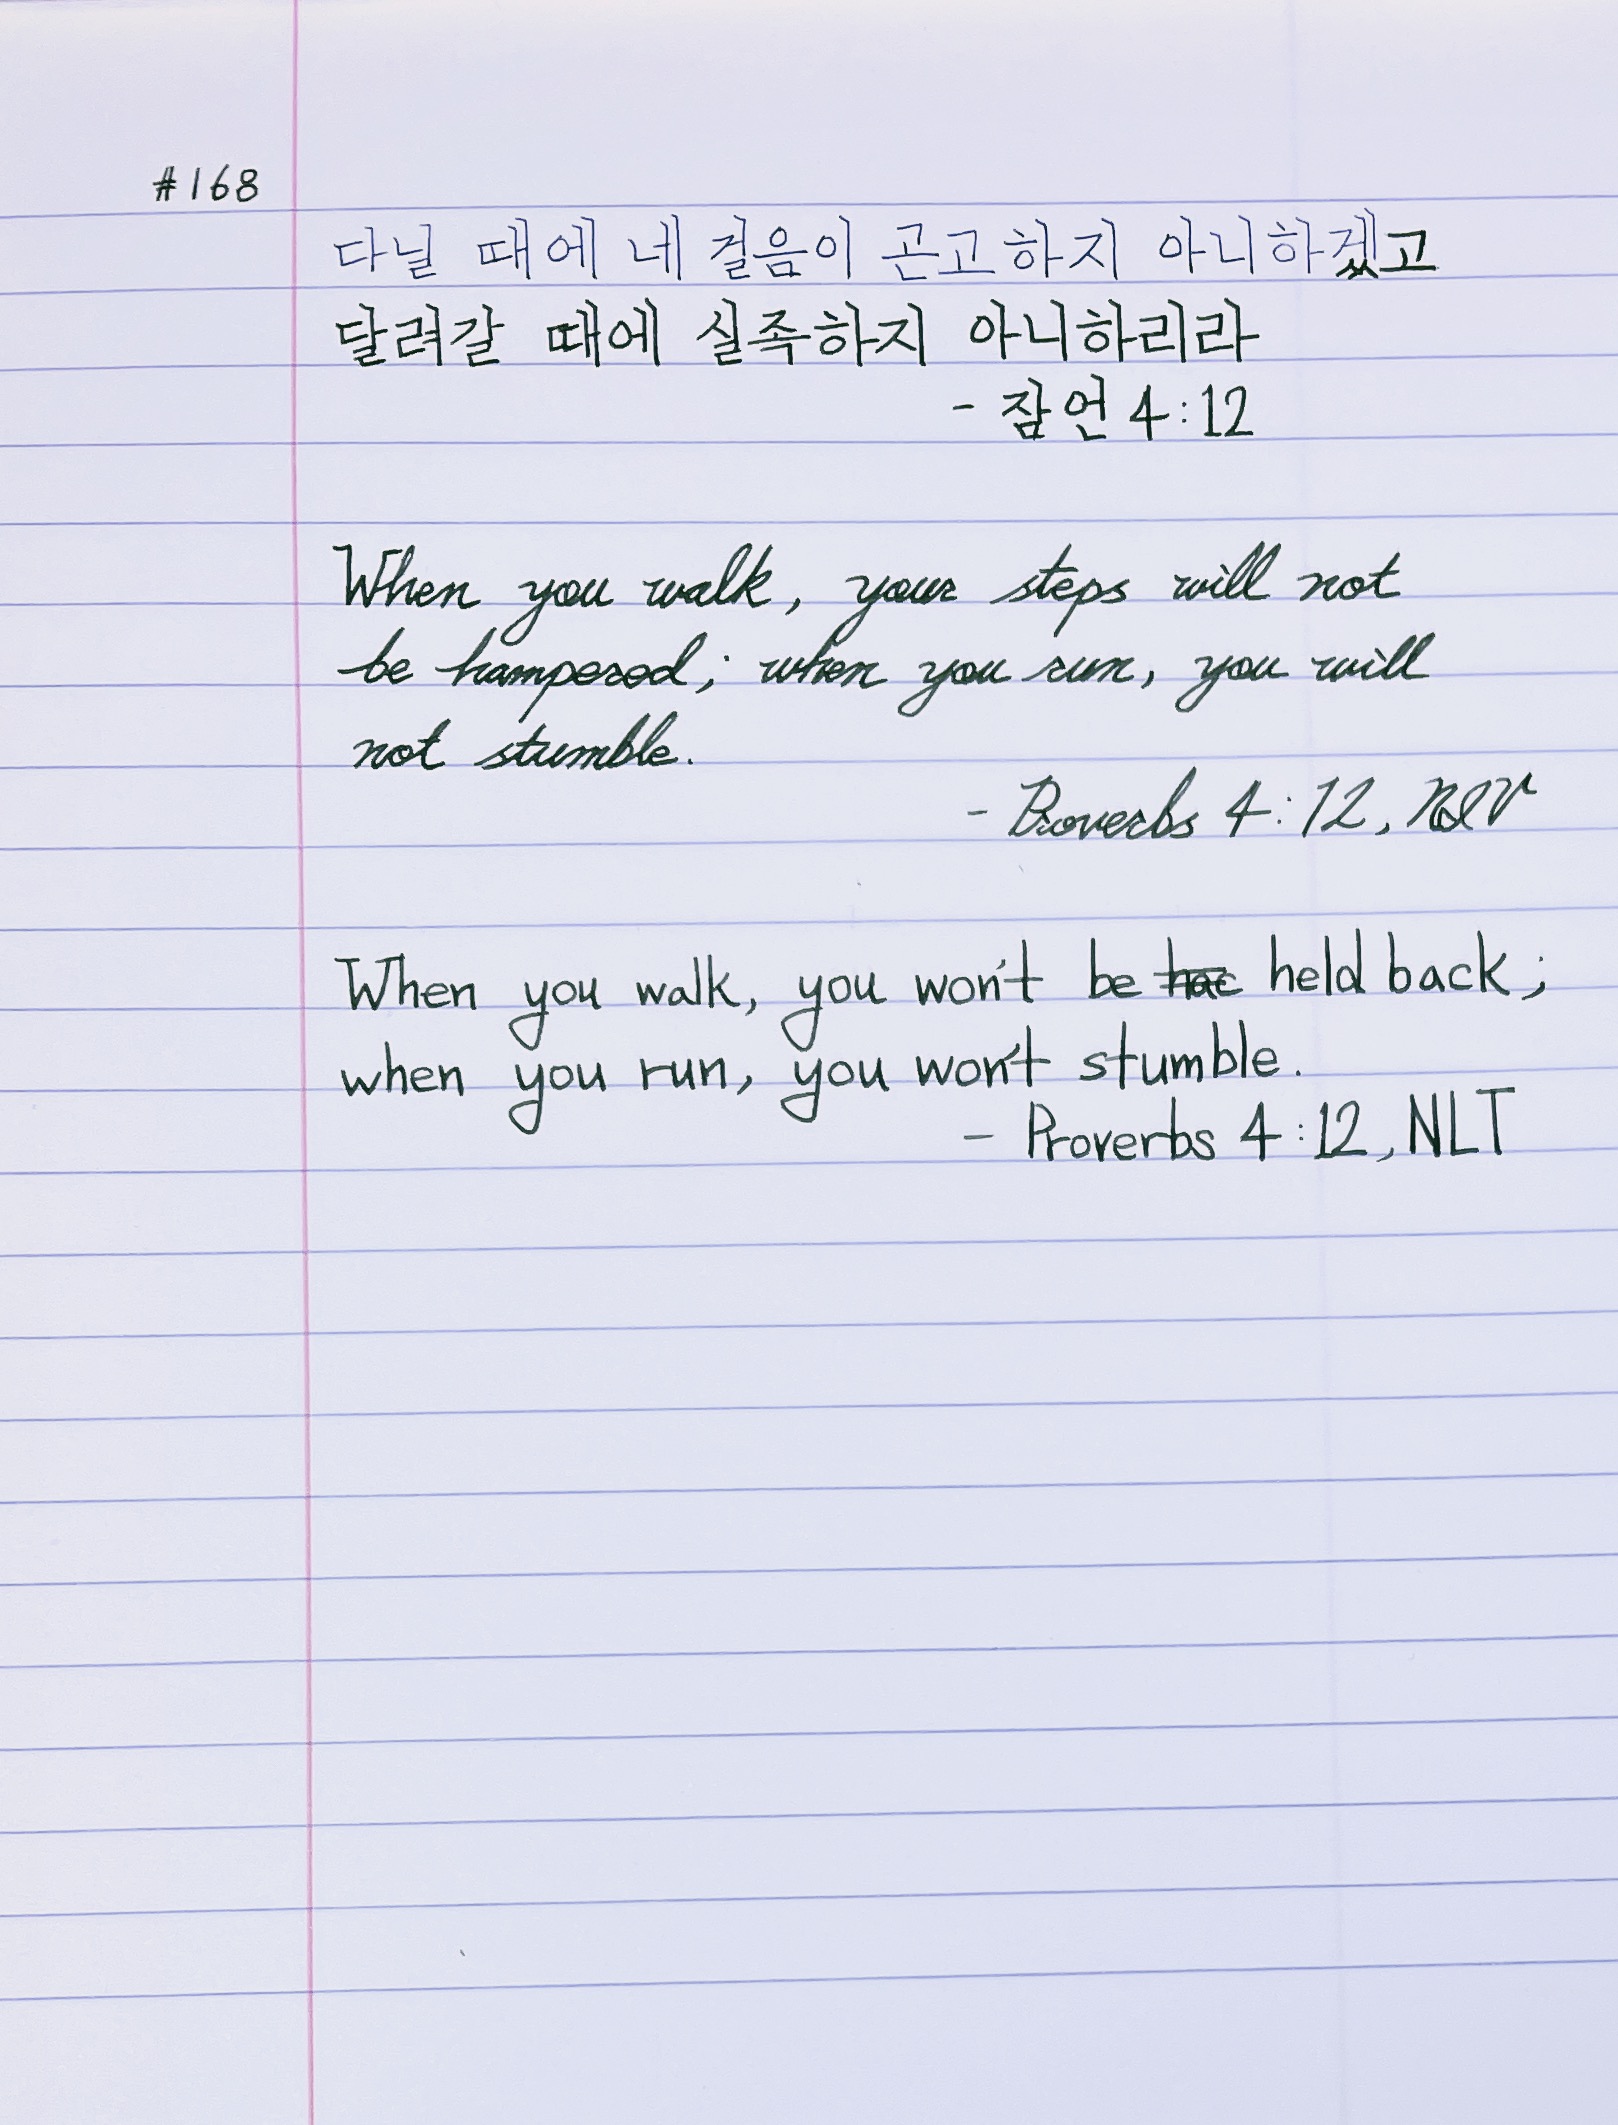 #168
다닐 때에 네 걸음이 곤고하지 아니하겠고
달려갈 때에 실족하지 아니하리라
- 잠언 4:12
When you walk, your steps will not
be hampered; when you run, you will
not stumble.
- Proverbs 4:12, NIV
When you walk, you won't be held back;
when you run, you won't stumble.
- Proverbs 4:12, NLT